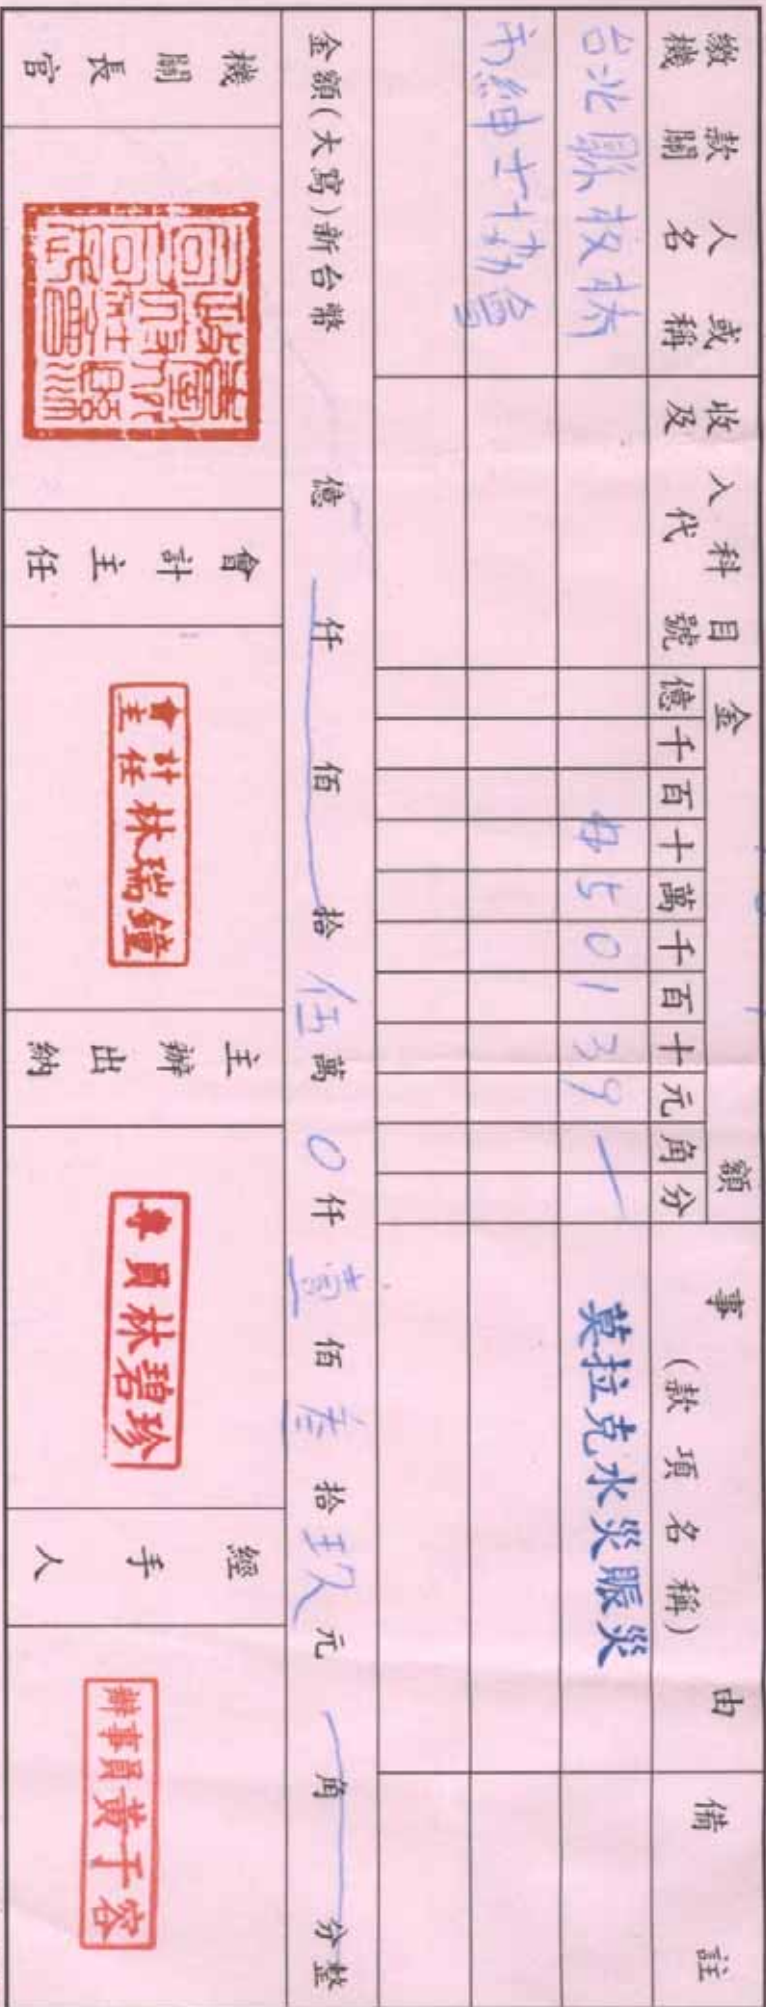 繳款人或機關名稱
收入科目及代號
金額
億千百十萬千百十元角分
事由
(款項名稱)
備註
台北縣板橋
市紳士協會
$50139
莫拉克水災賑災
金額(大寫)新台幣 億 仟 佰 拾 伍萬 0仟 壹佰 叁拾 玖元 角 分整
機關長官
會計主任
會計主任 林瑞鐘
主辦出納
專員林碧珍
經手人
辦事員黃于容